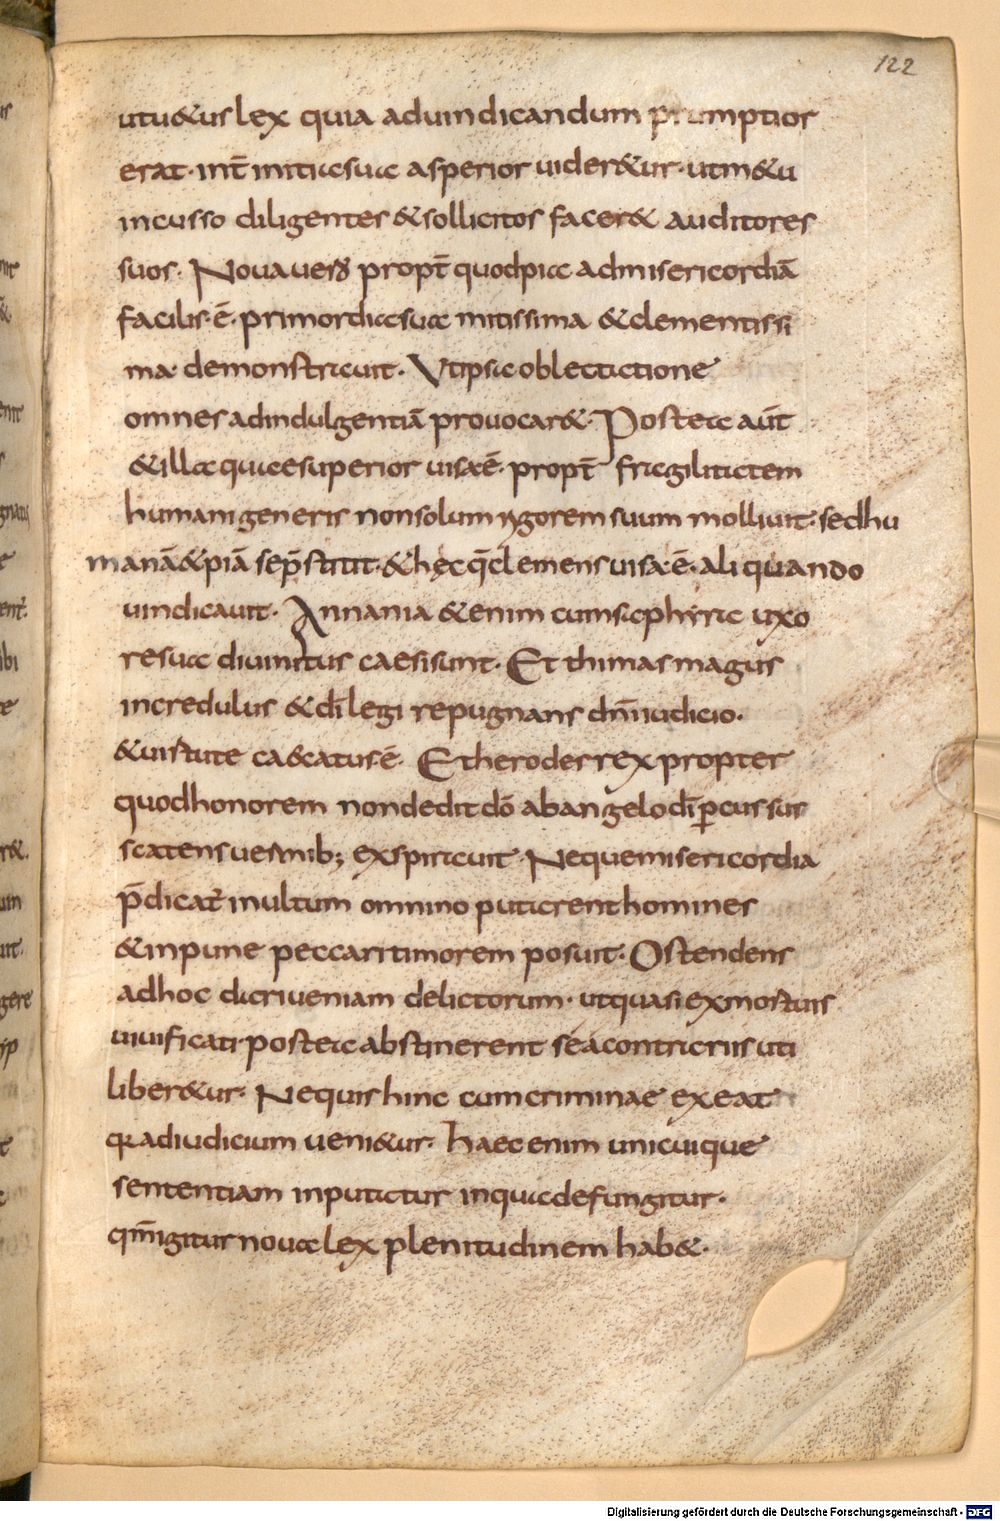 122
utu&us lex quia aduindicandum prumptior
erat· int̄ initiasua asperior uider&ur· utm&u
incusso diligenter &sollicitos facer& auditores
suos· Noua uero propt̄ quodpia admisericordiā
facilis·ē· primordiasua mitissima &clementissi
ma· demonstrauit· Utipsa oblectatione
omnes adindulgentiā prouocar&· Postea aūt
&illa quaesuperior uisaē· propt̄ fragilitatem
humani generis nonsolum rigorem suum molliuit· sedhu
manā&piā sep̄stitit· &hęc q̄clemens uisa·ē· aliquando
uindicauit· Annania &enim cumsaphyra uxo
resua diuinitus caesisunt· Et thimas magus
incredulus &dīlegi repugnans dn̄iudicio·
&uirtute caecatusē· Etherodes rex propter
quodhonorem nondedit dō abangelodī p̄cussus
scatens uermib; exspirauit· Nequemisericordia
p̄dicat̄ multum omnino putarent homines
&inpune peccari timorem posuit· Ostendens
adhoc dariueniam delictorum· utquasi exmortuis
uiuificati· postea abstinerent seacontrariis uti
liber&ur· Nequis hinc cum criminae exeat
qr adiudicium ueni&ur· haec enim unicuique
sententiam inputatur inquadefungitur·
qm̄igitur noua lex plenitudinem hab&·
Digitalisierung gefördert durch die Deutsche Forschungsgemeinschaft - DFG